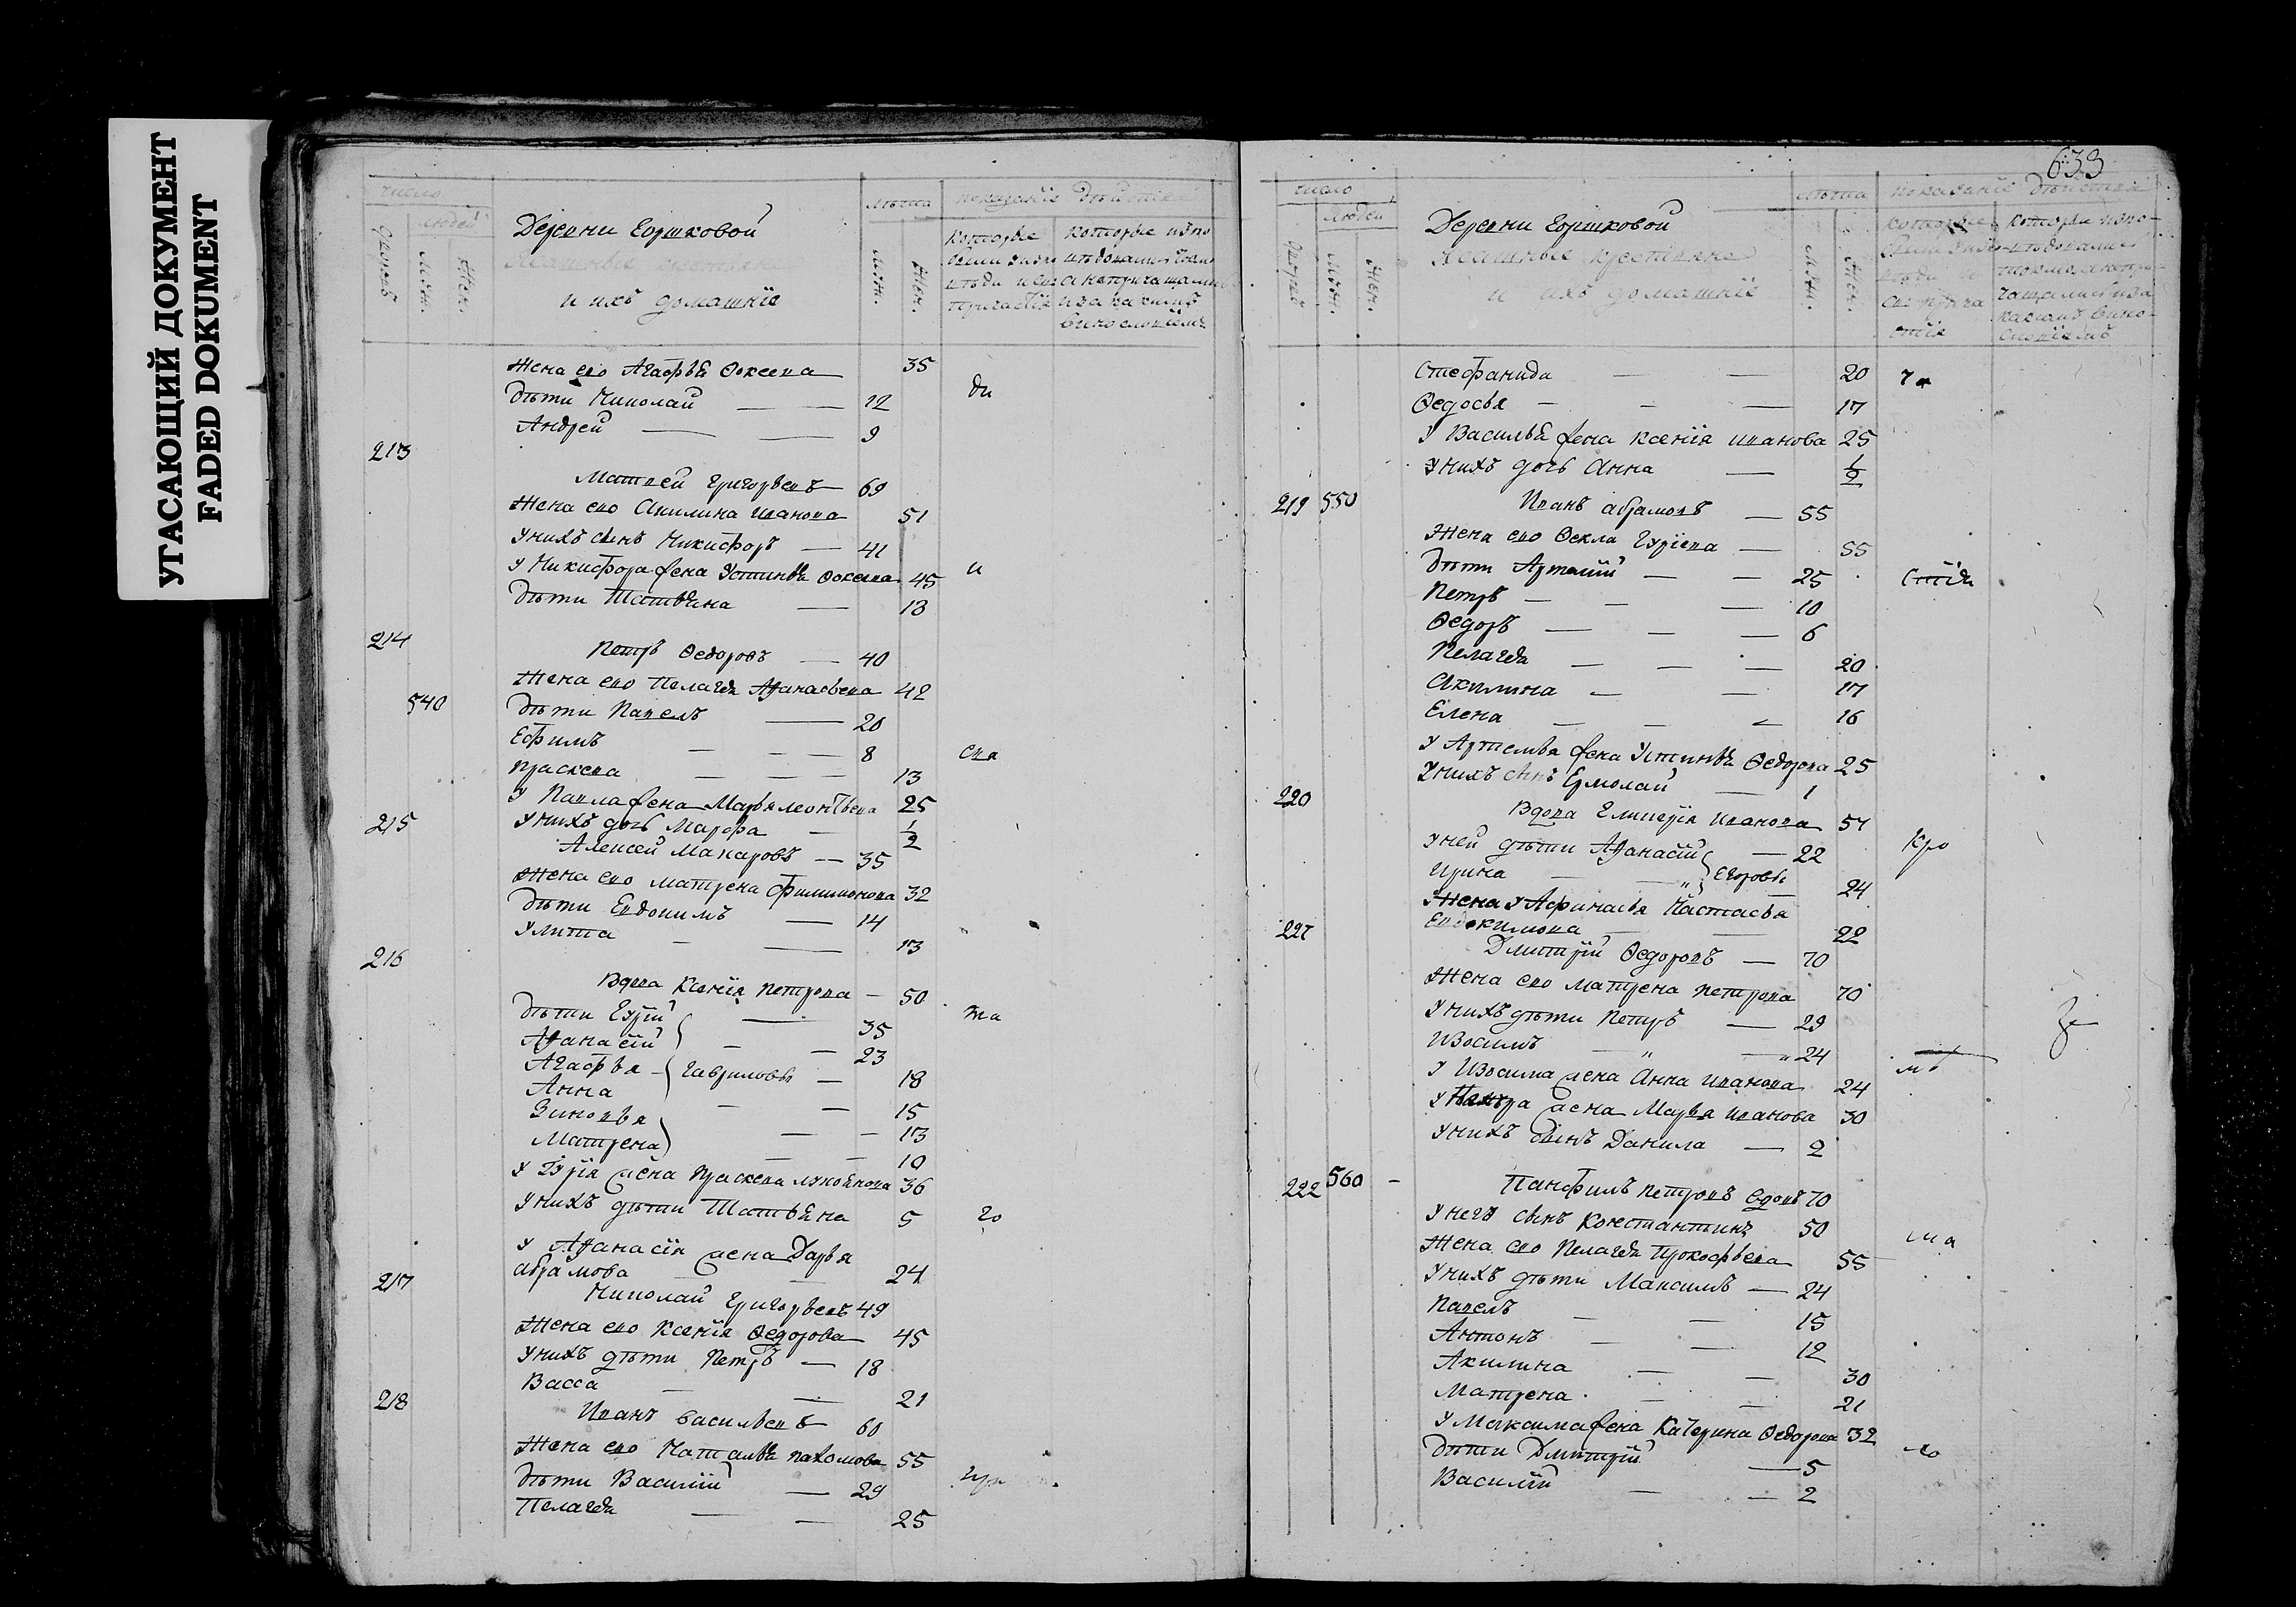 УГАСАЮЩИЙ ДОКУМЕНТ
FADED DOKUMENT
число
людей
дворовъ
Муж.
Жен.
Деревни Горшковой
и ихъ домашніе
Лѣта
Муж.
Жен.
показаніе дѣйства
Которые
были у испо
вѣди и св.
причастія
Которые испо
вѣдались токмо
а не причащались
и за какимъ
винословіемъ
Жена его Агафья Фокеева 35
дѣти Николай 12 ди
Андрей 9
213
Матвей Григорьевъ 69
Жена его Акилина Иванова 51
У нихъ сынъ Никифоръ 41
У Никифора жена Устинья Фокеева 45 и
дѣти Татьяна 13
214
Петръ Федоровъ 40
Жена его Пелагея Афанасьева 42
540 дѣти Павелъ 20
Ефимъ 8 сва
Праскева 13
У Павла жена Марья Леонтьева 25
У нихъ дочь Марфа 1/2
215 Алексей Макаровъ 35
Жена его Матрена Филимонова 32
дѣти Евдокимъ 14
Улита 13
216
Вдова Ксенія Петрова 50
дѣти Гурій 35 та
Афанасій 23
Агафья Гавриловы 18
Анна 15
Зиновья 13
Матрена 10
У Гурія жена Праскева Лукоянова 36
У нихъ дѣти Татьяна 5 го
У Афанасія жена Дарья
Абрамова 24
217 Николай Григорьевъ 49
Жена его Ксенія Федорова 45
У нихъ дѣти Петръ 18
Васса 21
218 Иванъ Васильевъ 60
Жена его Наталья Пахомова 55
дѣти Василій 29
Пелагея 25
633
число
людей
Муж.
Жен.
Деревни Горшковой
Ясашные крестьяне
и ихъ домашніе
лѣта
Муж.
Жен.
показаніе дѣйства
Которые
были у испо-
вѣди и
св. прича
стія
Которые испо-
вѣдались
токмо, а не при-
чащались и за
какимъ вино-
словіемъ
Стефанида 20
Федосья 17
У Василья жена Ксенія Иванова 25
У нихъ дочь Анна 1/2
219 550 Иванъ Абрамовъ 55
Жена его Фекла Гуріева 55
дѣти Артемій 25
Петръ 10
Федоръ 6
Пелагея 20
Акилина 17
Елена 16
У Артемья жена Устинья Федорова 25
У нихъ сынъ Ермолай 1
220
Вдова Гликерія Иванова 57
У ней дѣти Афанасій 22 Кро
Ирина Егоровы 24
Жена у Афанасья Настасья
Евдокимова 22
221
Дмитрій Федоровъ 70
Жена его Матрена Петрова 70
У нихъ дѣти Петръ 29
Изосимъ 24
У Изосима жена Анна Иванова 24
У Петра жена Марья Иванова 30
У нихъ сынъ Данила 2
222 560 Панфилъ Петровъ вдовъ 70
У него сынъ Константинъ 50
Жена его Пелагея Прокофьева 55
У нихъ дѣти Максимъ 24
Павелъ 15
Антонъ 12
Акилина 30
Матрена 21
У Максима жена Катерина Федорова 32
дѣти Дмитрій 5 го
Василій 2